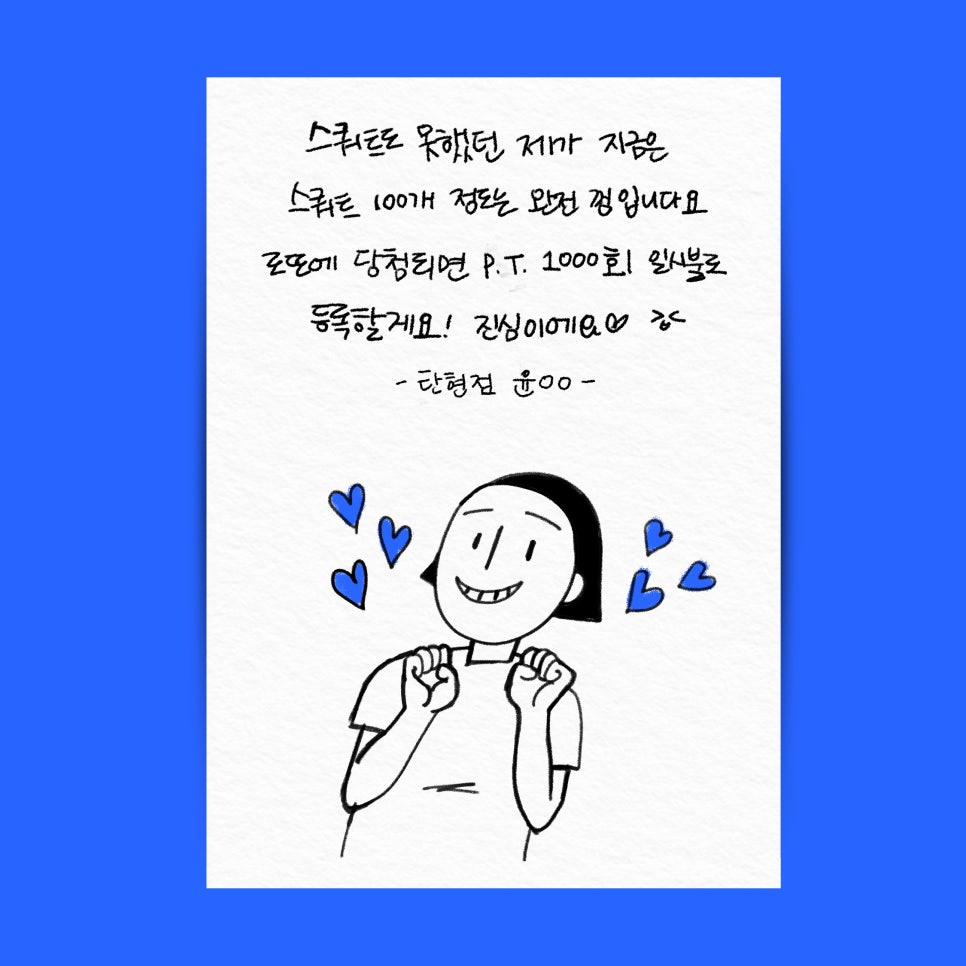 스쿼트도 못했던 제가 지금은
스쿼트 100개 정도는 완전 껌입니다요
로또에 당첨되면 P.T. 1000회 일시불로
등록할게요! 진심이에요♡ >.<
- 탄형점 윤OO -